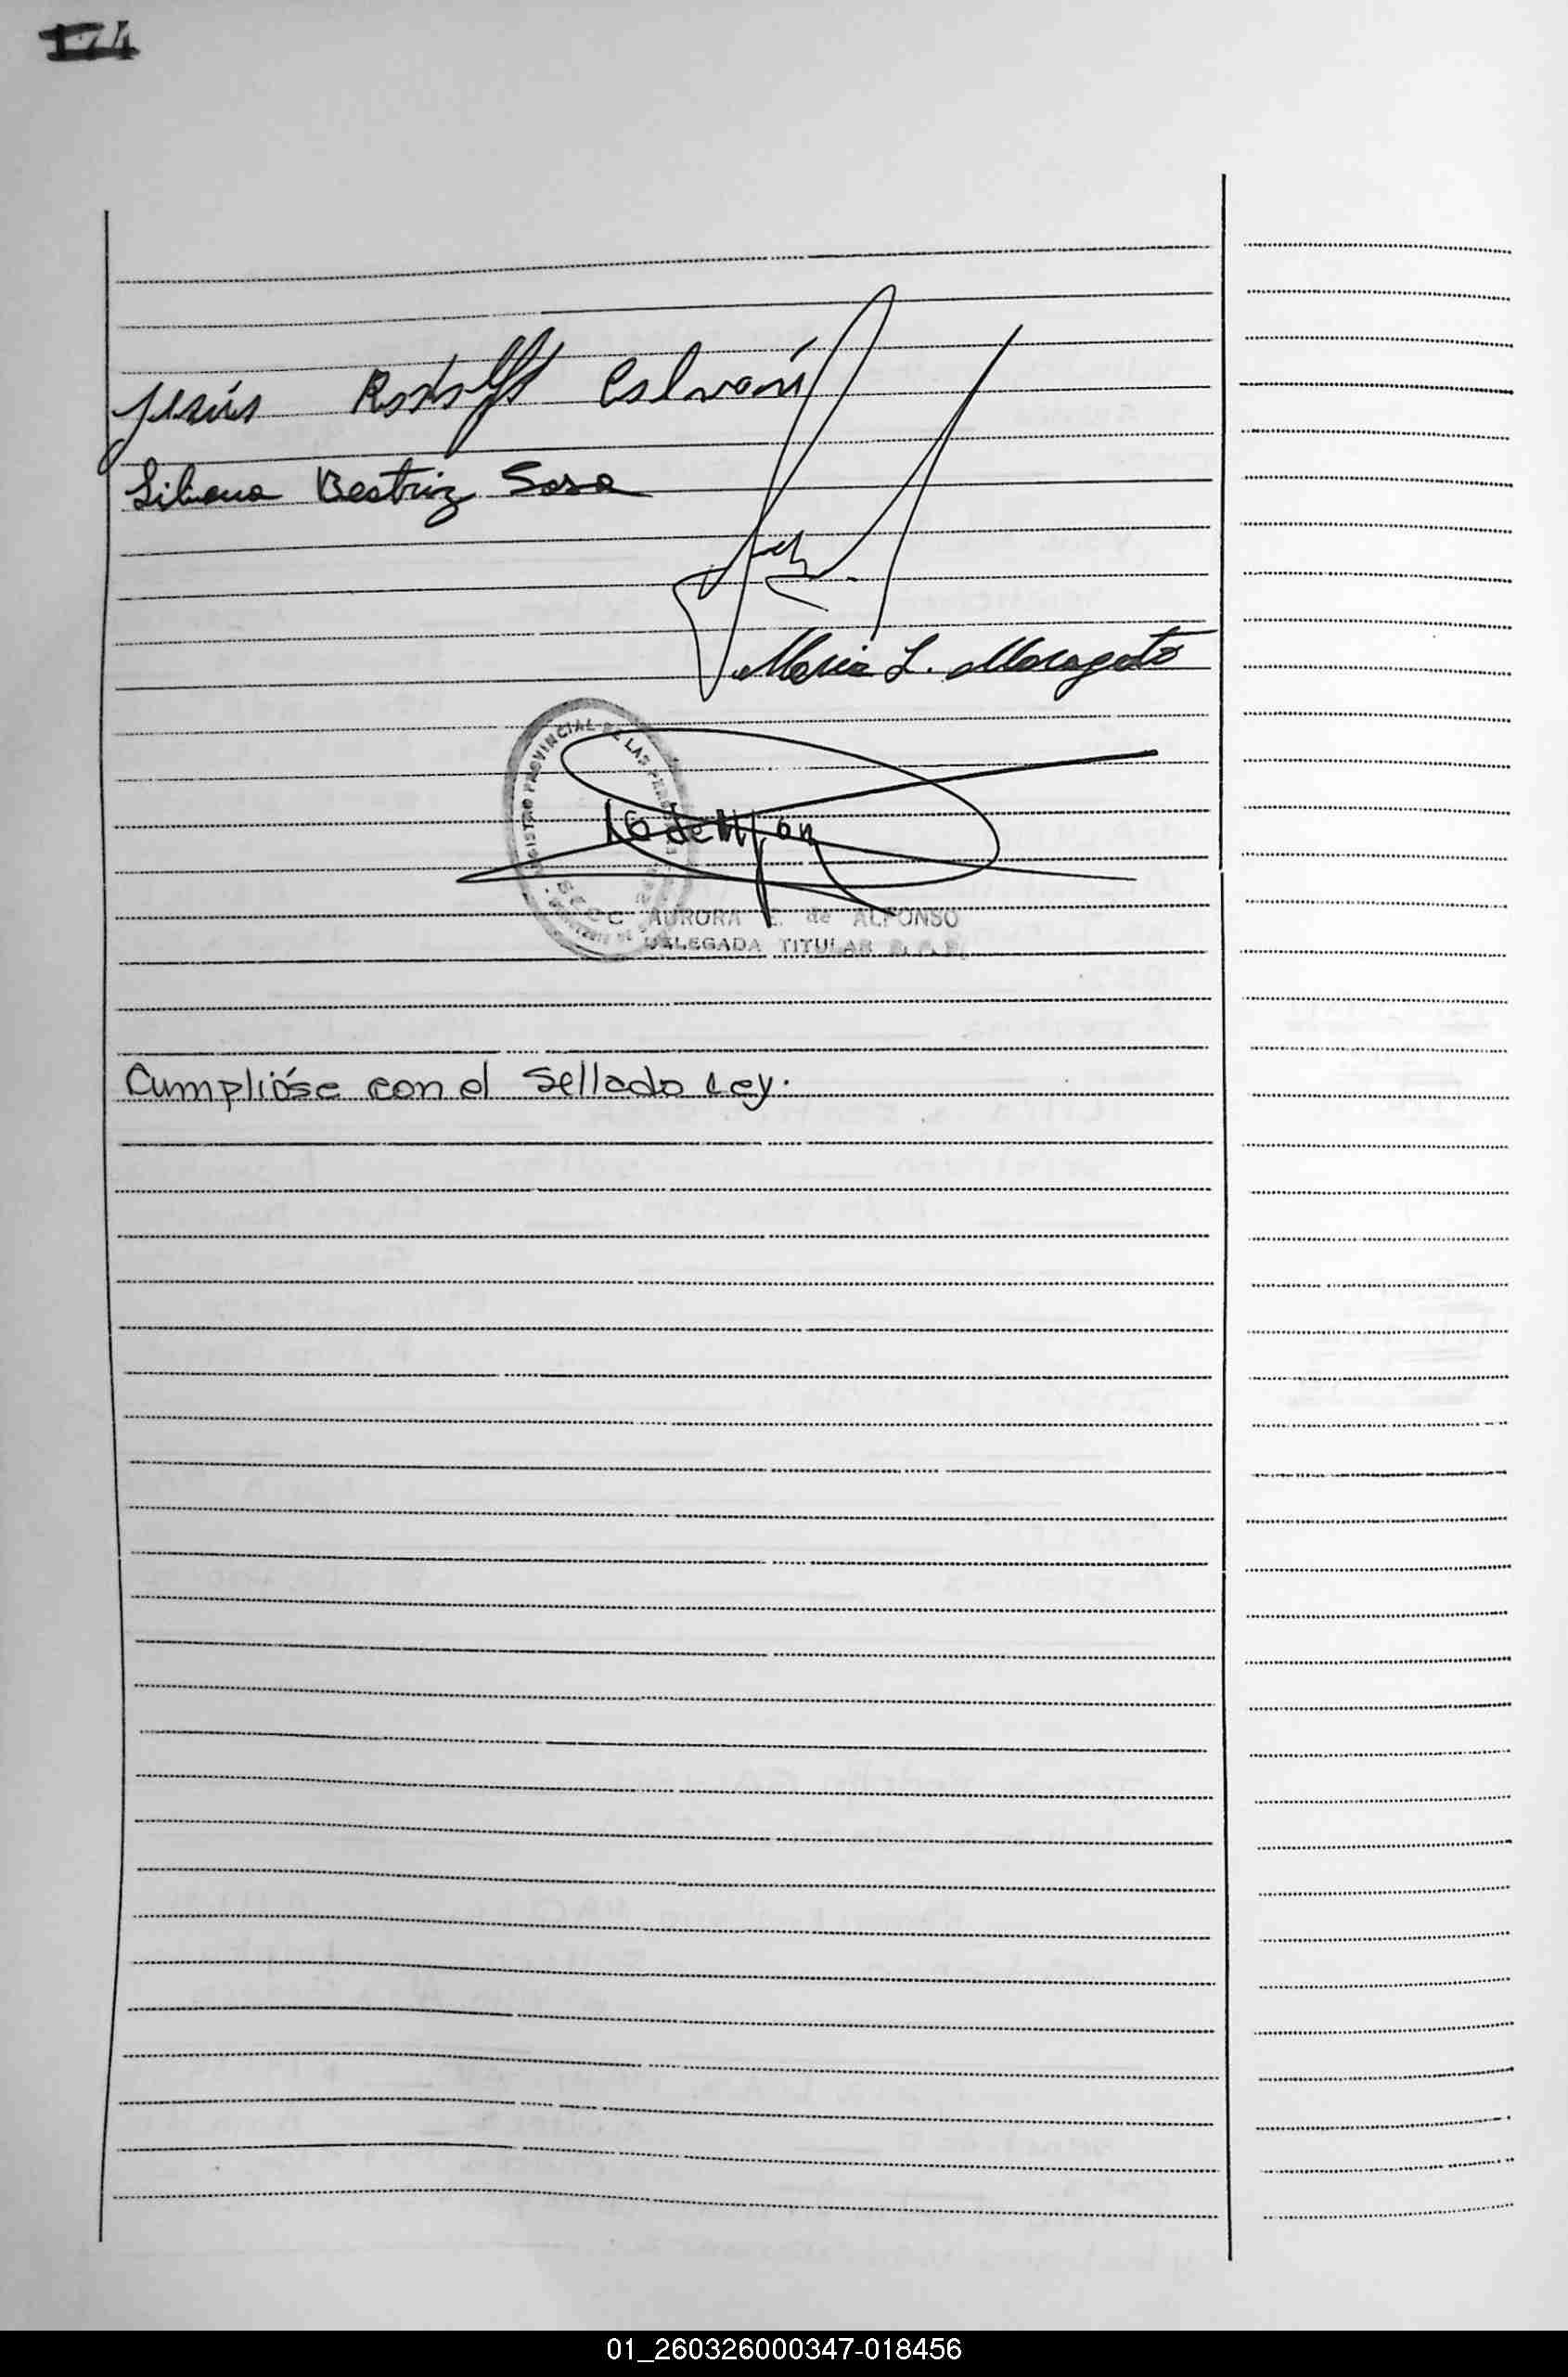 174
Jesús Rodolfo Galván
Liliana Beatriz Sosa
Maria L. Maragoto
REGISTRO PROVINCIAL DE LAS
AURORA E. de ALFONSO
DELEGADA TITULAR
Cumplióse con el Sellado Ley.
01_260326000347-018456